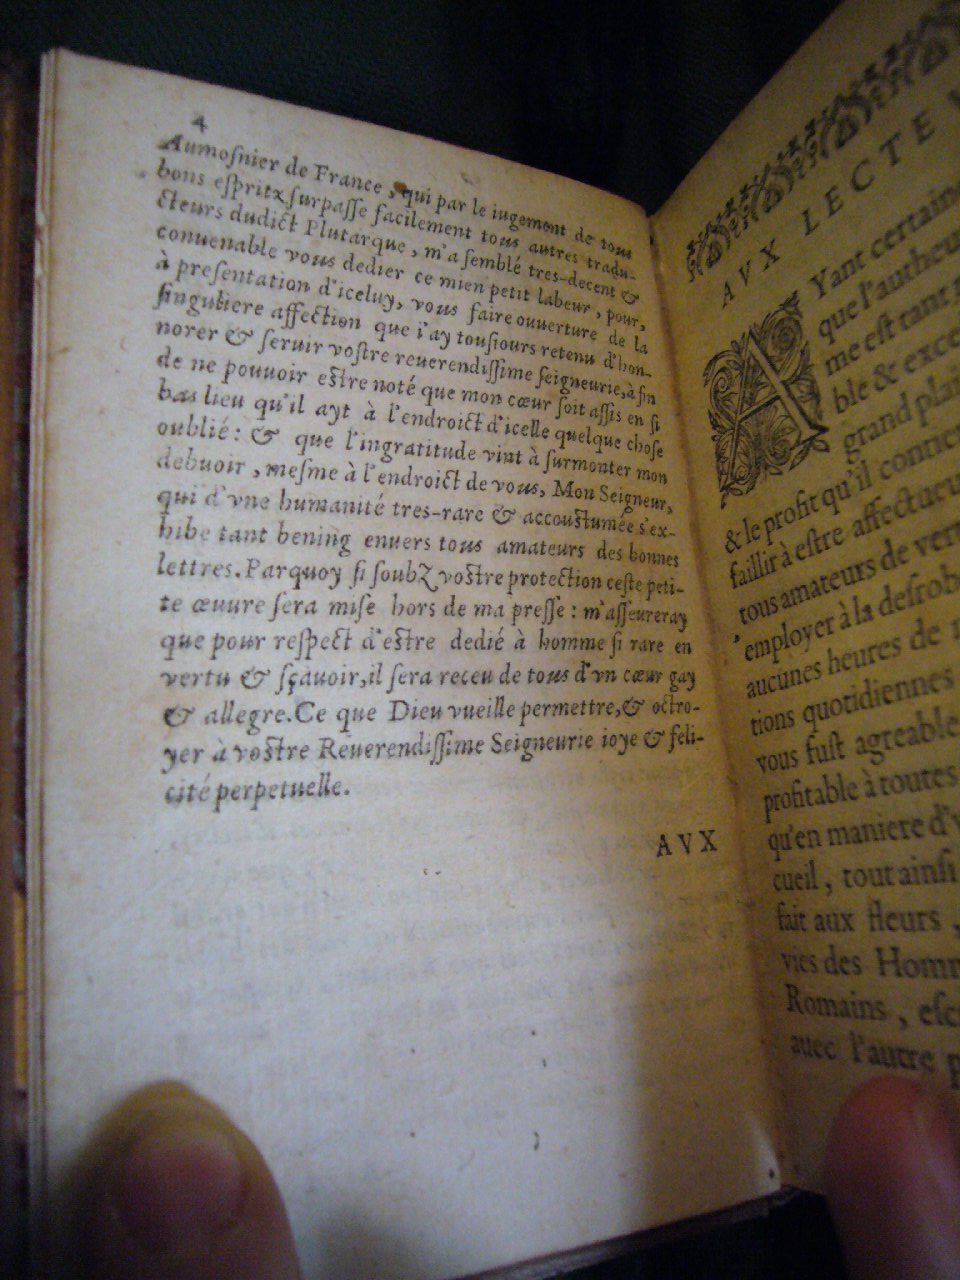 4
Aumoſnier de France, qui par le iugement de tous
bons eſpritz ſurpaſſe facilement tous autres tradu-
cteurs dudict Plutarque, m'a ſemblé tres-decent &
conuenable vous dedier ce mien petit labeur, pour,
à preſentation d'iceluy, vous faire ouuerture de la
ſinguliere affection que i'ay touſiours retenu d'hon-
norer & ſeruir voſtre reuerendiſſime ſeigneurie, à fin
de ne pouuoir eſtre noté que mon cœur ſoit aſſis en ſi
bas lieu qu'il ayt à l'endroict d'icelle quelque choſe
oublié: & que l'ingratitude vint à ſurmonter mon
debuoir, meſme à l'endroict de vous, Mon Seigneur,
qui d'vne humanité tres-rare & accouſtumée s'ex-
hibe tant bening enuers tous amateurs des bonnes
lettres. Parquoy ſi ſoubz voſtre protection ceſte peti-
te œuure ſera miſe hors de ma preſſe: m'aſſeureray
que pour reſpect d'eſtre dedié à homme ſi rare en
vertu & sçauoir, il ſera receu de tous d'vn cœur gay
& allegre. Ce que Dieu vueille permettre, & octro-
yer à voſtre Reuerendiſſime Seigneurie ioye & feli-
cité perpetuelle.
AVX
AVX LECTE
AYant certain
que l'autheu
me eſt tant
ble & exce
grand plai
& le profit qu'il contie
faillir à eſtre affectueu
tous amateurs de vert
employer à la deſrob
aucunes heures de
tions quotidiennes
vous fuſt agreable
profitable à toutes
qu'en maniere d'v
cueil, tout ainſi
fait aux fleurs,
vies des Hom
Romains, eſc
auec l'autre p